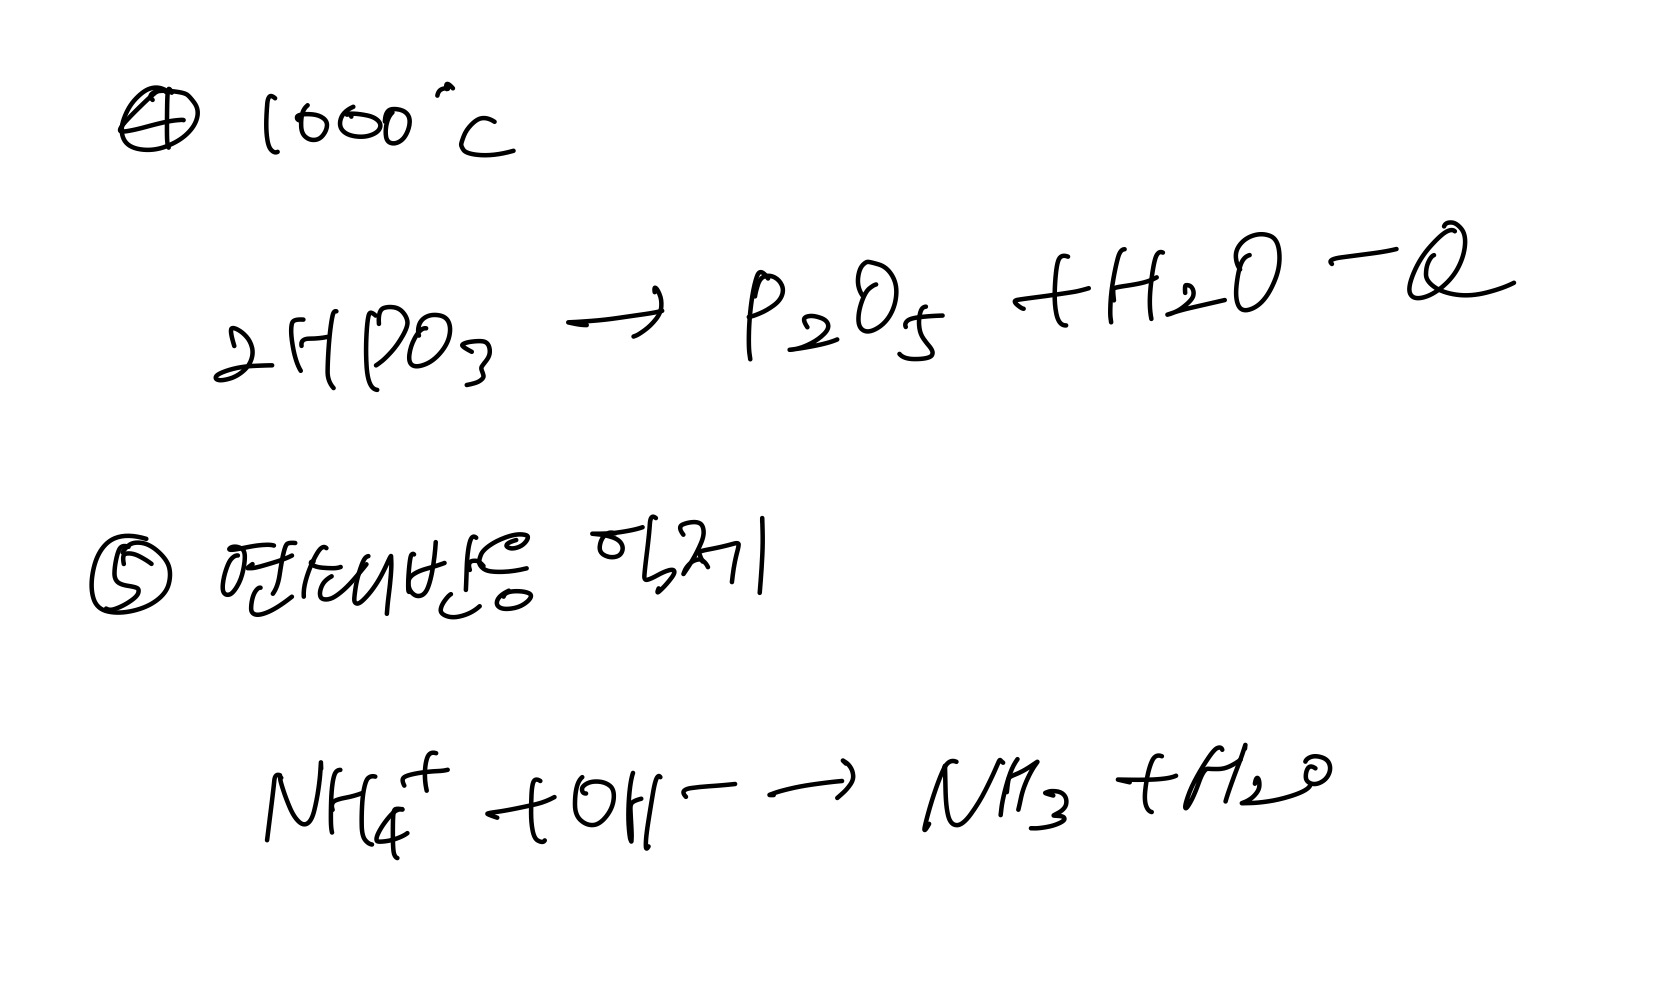 ④ 1000℃
2HPO₃ → P₂O₅ + H₂O - Q
⑤ 연쇄반응 억제
NH₄⁺ + OH⁻ → NH₃ + H₂O